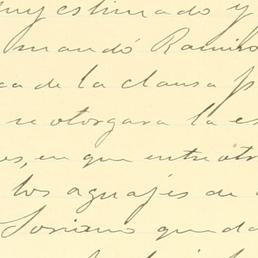 muy estimado y
mandó Ramiro
ca de la clausa p
se otorgara la es
es, en que entre otr
los aguajes de
Soriano queda